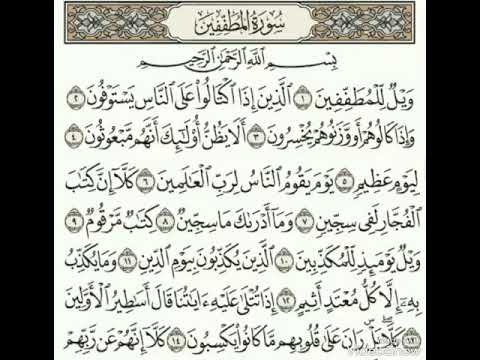 سُورَةُ المُطَفِّفِينَ
بِسْمِ اللَّهِ الرَّحْمَٰنِ الرَّحِيمِ
وَيْلٌ لِّلْمُطَفِّفِينَ ١ الَّذِينَ إِذَا اكْتَالُوا عَلَى النَّاسِ يَسْتَوْفُونَ ٢
وَإِذَا كَالُوهُمْ أَو وَّزَنُوهُمْ يُخْسِرُونَ ٣ أَلَا يَظُنُّ أُولَٰئِكَ أَنَّهُم مَّبْعُوثُونَ ٤
لِيَوْمٍ عَظِيمٍ ٥ يَوْمَ يَقُومُ النَّاسُ لِرَبِّ الْعَالَمِينَ ٦ كَلَّا إِنَّ كِتَابَ
الْفُجَّارِ لَفِي سِجِّينٍ ٧ وَمَا أَدْرَاكَ مَا سِجِّينٌ ٨ كِتَابٌ مَّرْقُومٌ ٩
وَيْلٌ يَوْمَئِذٍ لِّلْمُكَذِّبِينَ ١٠ الَّذِينَ يُكَذِّبُونَ بِيَوْمِ الدِّينِ ١١ وَمَا يُكَذِّبُ
بِهِ إِلَّا كُلُّ مُعْتَدٍ أَثِيمٍ ١٢ إِذَا تُتْلَىٰ عَلَيْهِ آيَاتُنَا قَالَ أَسَاطِيرُ الْأَوَّلِينَ
١٣ كَلَّا بَلْ رَانَ عَلَىٰ قُلُوبِهِم مَّا كَانُوا يَكْسِبُونَ ١٤ كَلَّا إِنَّهُمْ عَن رَّبِّهِمْ